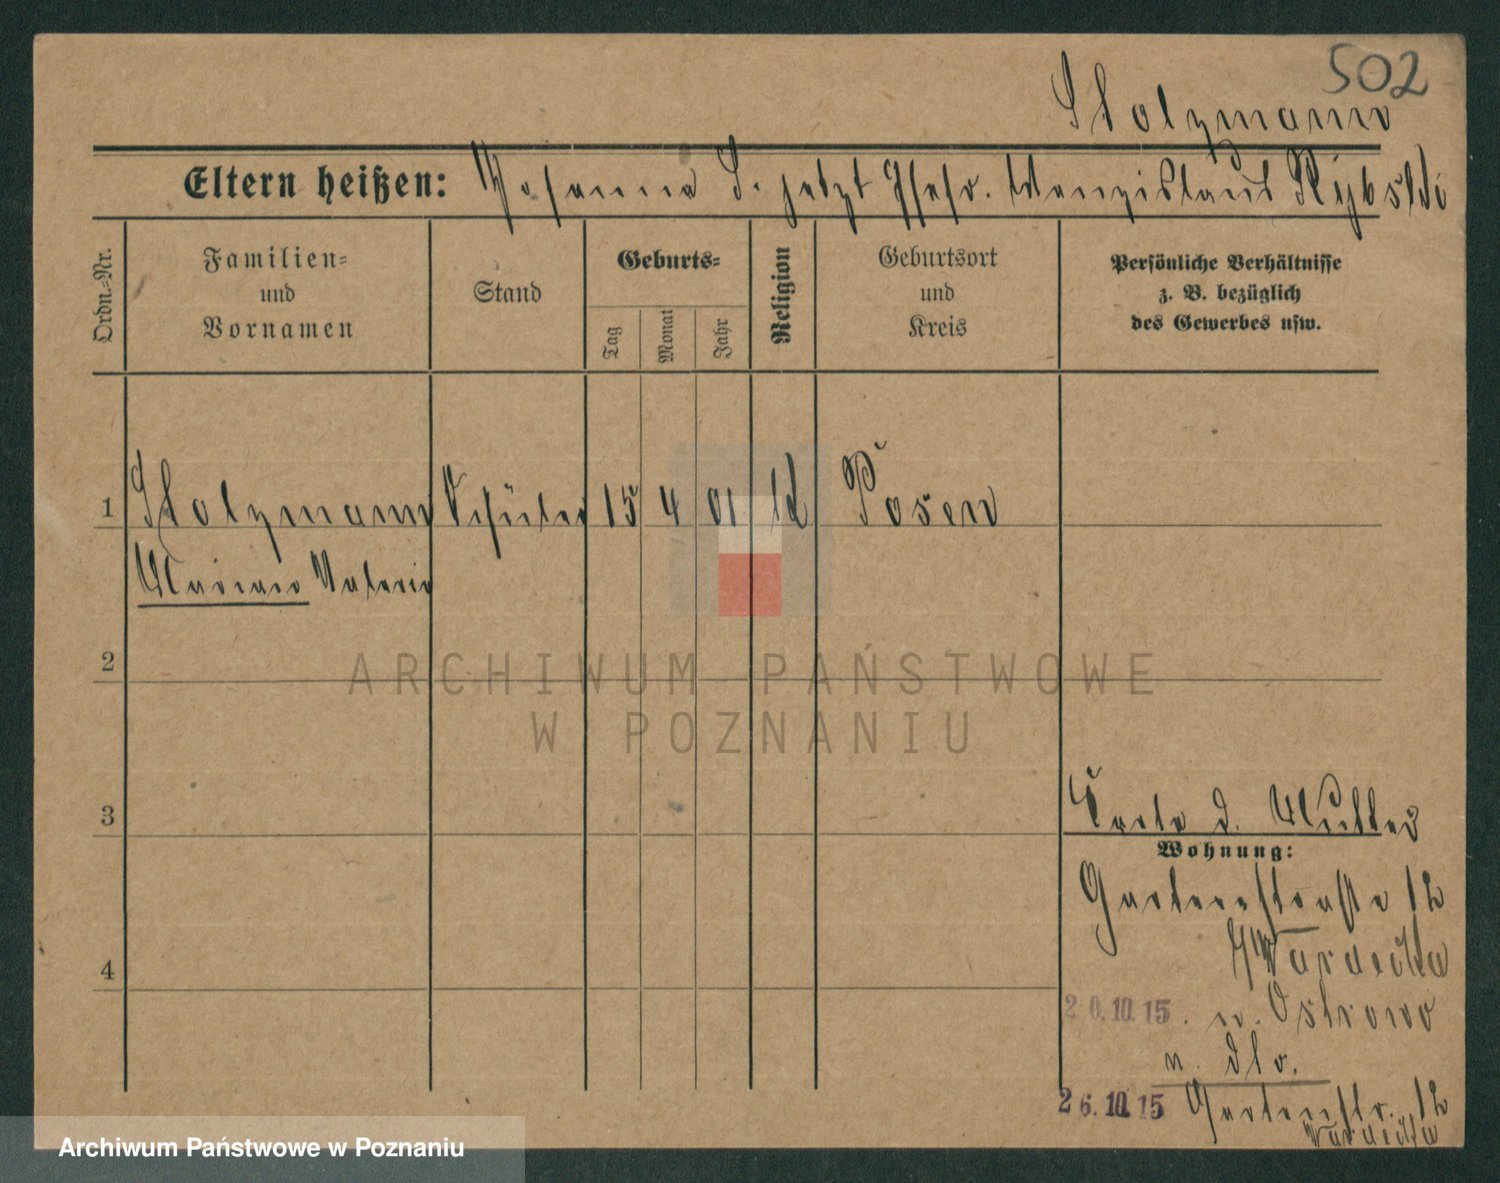 502
Stolzmann
Eltern heißen: Johanna S. jetzt Ehefr. Wenzislaus Rybski
Ordn.-Nr.
Familien-
und
Vornamen
Stand
Geburts-
Tag
Monat
Jahr
Religion
Geburtsort
und
Kreis
Persönliche Verhältnisse
z. B. bezüglich
des Gewerbes usw.
1 Stolzmann Schüler 15 4 01 k Posen
Marian Valerin
2
ARCHIWUM PAŃSTWOWE
W POZNANIU
3
Karte d. Mutter
Wohnung:
Gartenstraße 12
4
20.10.15. n. Ostrowo
n. dlr.
26.10.15 Gartenstr. 12
Archiwum Państwowe w Poznaniu